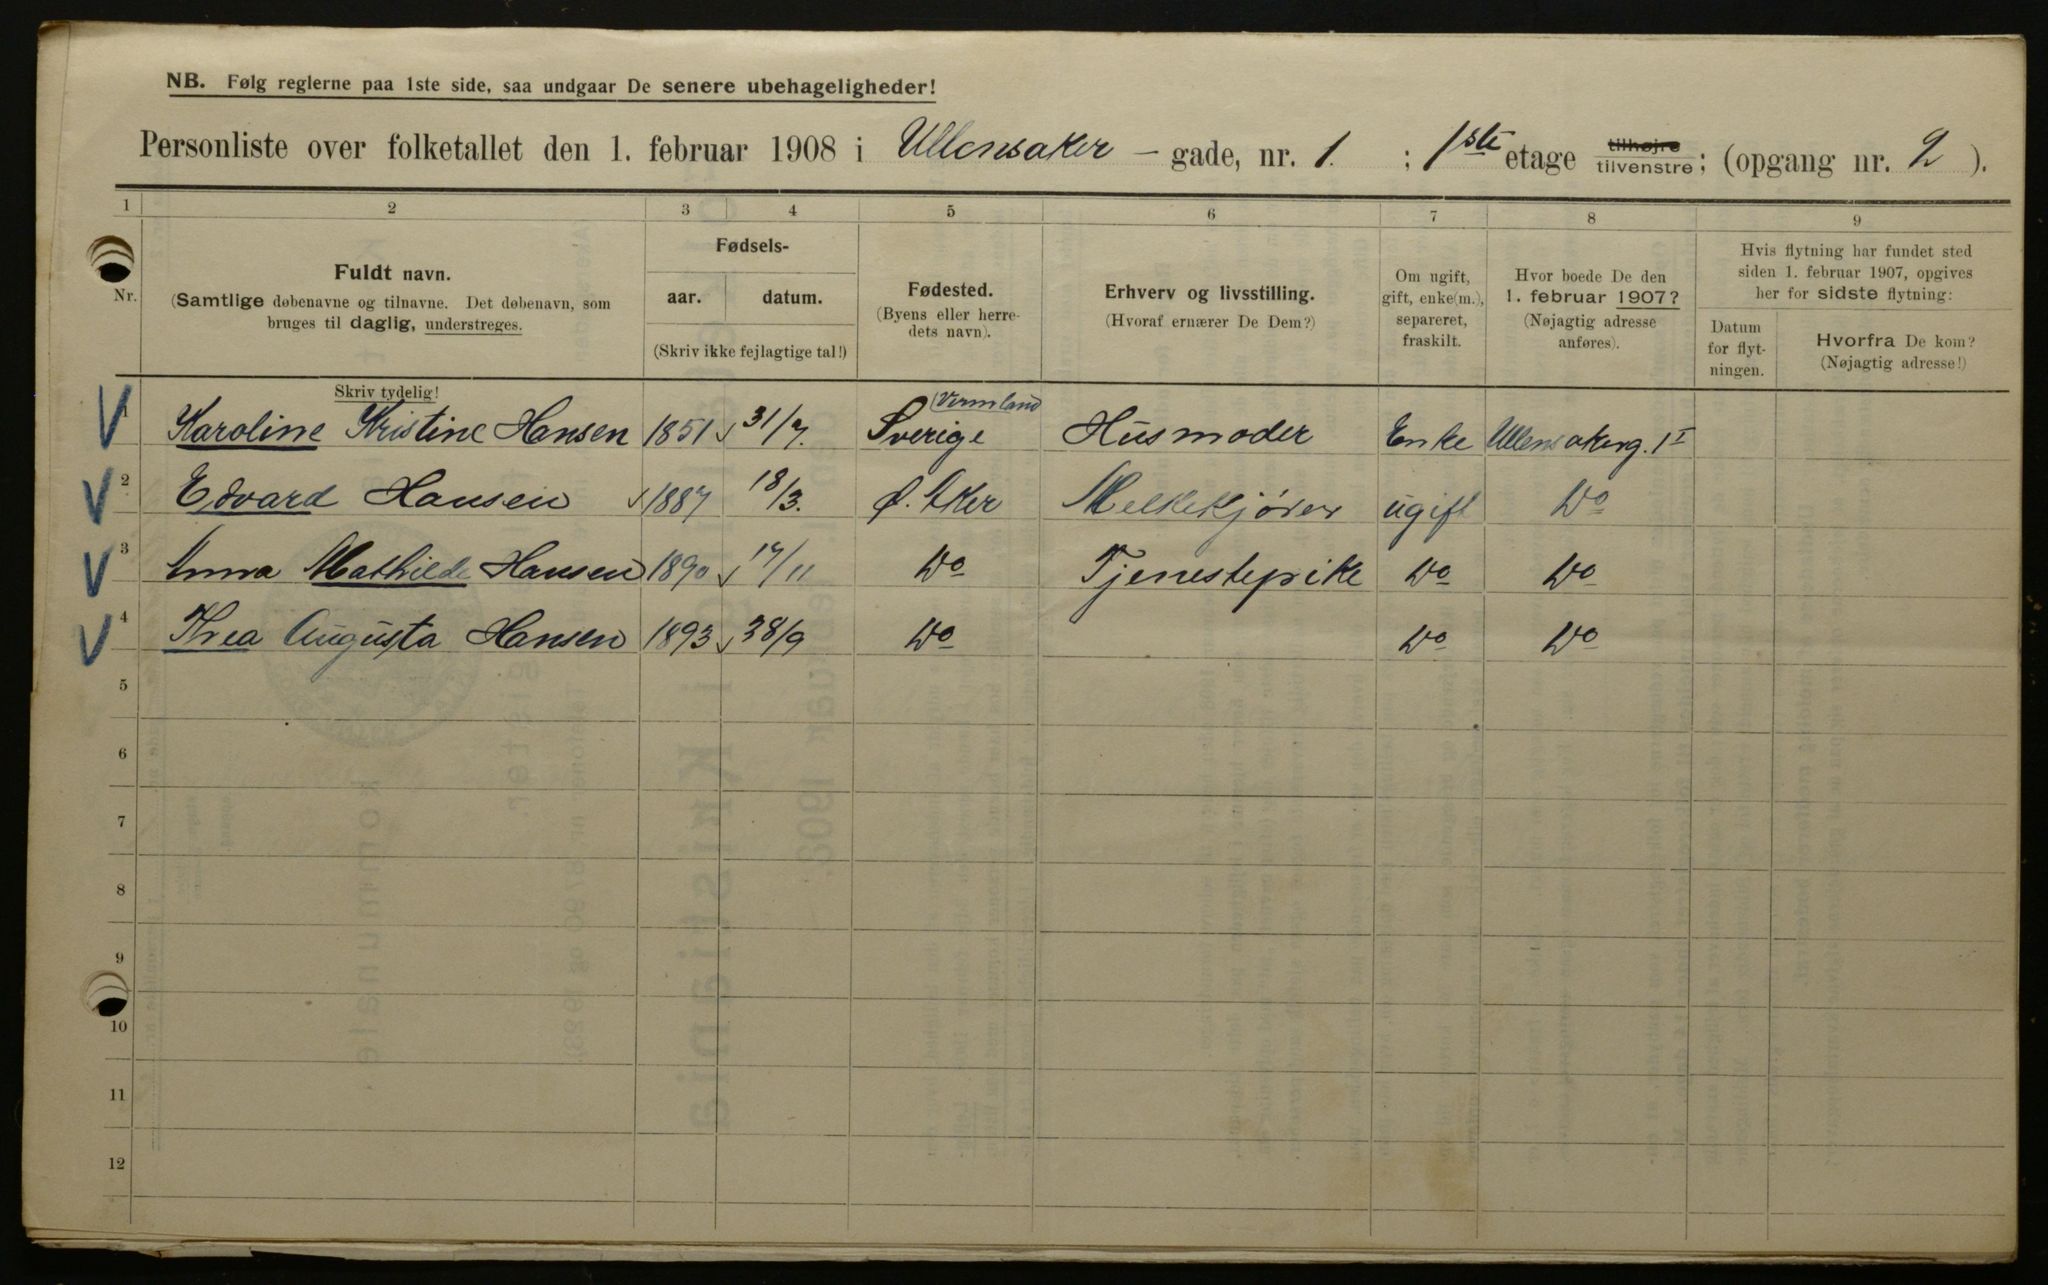 NB. Følg reglerne paa 1ste side, saa undgaar De senere ubehageligheder!
Personliste over folketallet den 1. februar 1908 i Ullensaker — gade, nr. 1. ; 1ste etage tilhøjre tilvenstre; (opgang nr. 2 ).
1 2 3 4 5 6 7 8 9
Nr.
Fuldt navn.
(Samtlige døbenavne og tilnavne. Det døbenavn, som
bruges til daglig, understreges.
Skriv tydelig!
Fødsels-
aar. datum.
(Skriv ikke fejlagtige tal!)
Fødested.
(Byens eller herre-
dets navn).
Erhverv og livsstilling.
(Hvoraf ernærer De Dem?)
Om ugift,
gift, enke(m.),
separeret,
fraskilt.
Hvor boede De den
1. februar 1907?
(Nøjagtig adresse
anføres).
Hvis flytning har fundet sted
siden 1. februar 1907, opgives
her for sidste flytning:
Datum
for flyt-
ningen.
Hvorfra De kom?
(Nøjagtig adresse!)
1 Karoline Kristine Hansen 1851 31/7. Sverige (Vermland Husmoder Enke Ullensakerg. 1 I
2 Edvard Hansen 1887 18/3. Ø. Aker Melkekjører ugift Do
3 Anna Mathilde Hansen 1890 17/11 Do Tjenestepike Do Do
4 Thea Augusta Hansen 1893 28/9 Do Do Do
5
6
7
8
9
10
11
12